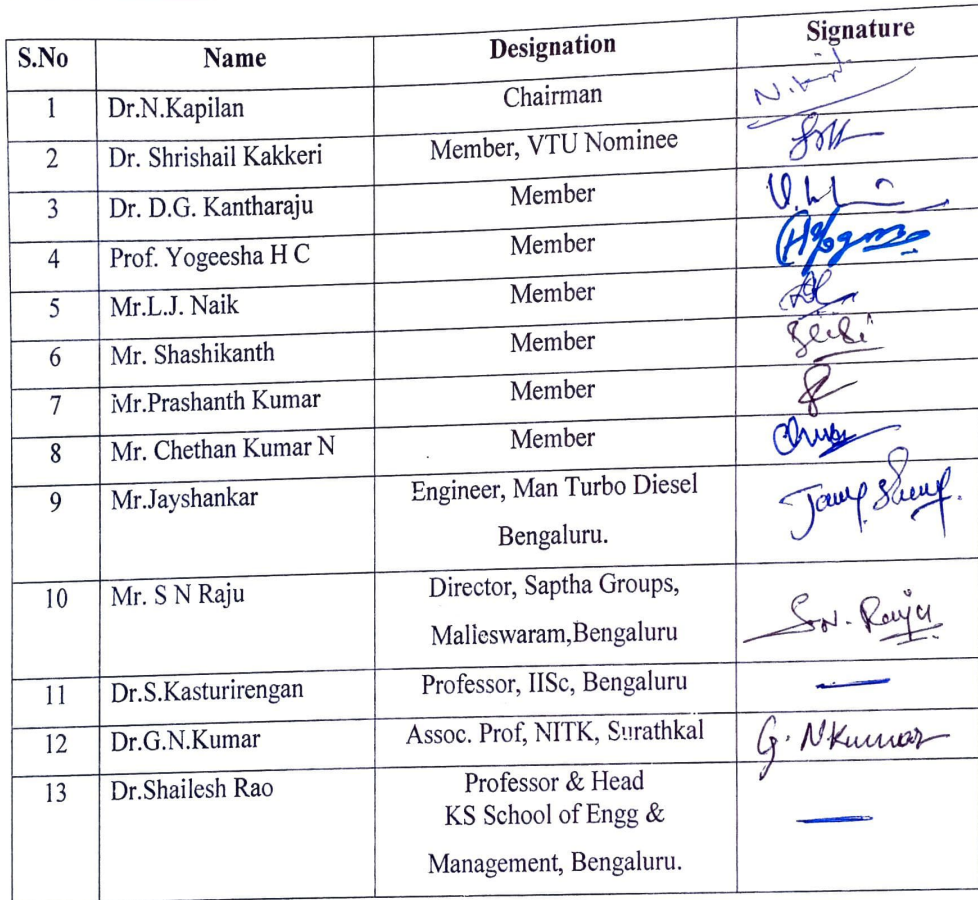 S.No Name Designation Signature
1 Dr.N.Kapilan Chairman N.
2 Dr. Shrishail Kakkeri Member, VTU Nominee
3 Dr. D.G. Kantharaju Member
4 Prof. Yogeesha H C Member
5 Mr.L.J. Naik Member
6 Mr. Shashikanth Member
7 Mr.Prashanth Kumar Member
8 Mr. Chethan Kumar N Member
9 Mr.Jayshankar Engineer, Man Turbo Diesel
Bengaluru.
10 Mr. S N Raju Director, Saptha Groups,
Malieswaram,Bengaluru S.N. Raju
11 Dr.S.Kasturirengan Professor, IISc, Bengaluru —
12 Dr.G.N.Kumar Assoc. Prof, NITK, Surathkal G. NKumar
13 Dr.Shailesh Rao Professor & Head
KS School of Engg & —
Management, Bengaluru.